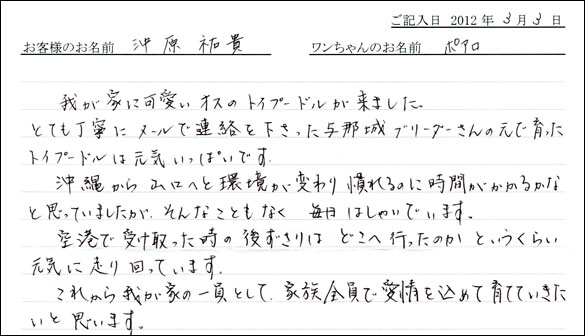 ご記入日 2012 年 3 月 3 日
お客様のお名前 沖原 祐貴 ワンちゃんのお名前 ポアロ
我が家に可愛いオスのトイプードルが来ました。
とても丁寧にメールで連絡を下さった与那城ブリーダーさんの元で育った
トイプードルは元気いっぱいです。
沖縄から山口へと環境が変わり慣れるのに時間がかかるかな
と思っていましたが、そんなこともなく 毎日はしゃいでいます。
空港で受け取った時の後ずさりは どこへ行ったのか というくらい
元気に走り回っています。
これから我が家の一員として、家族全員で愛情を込めて育てていきた
いと思います。